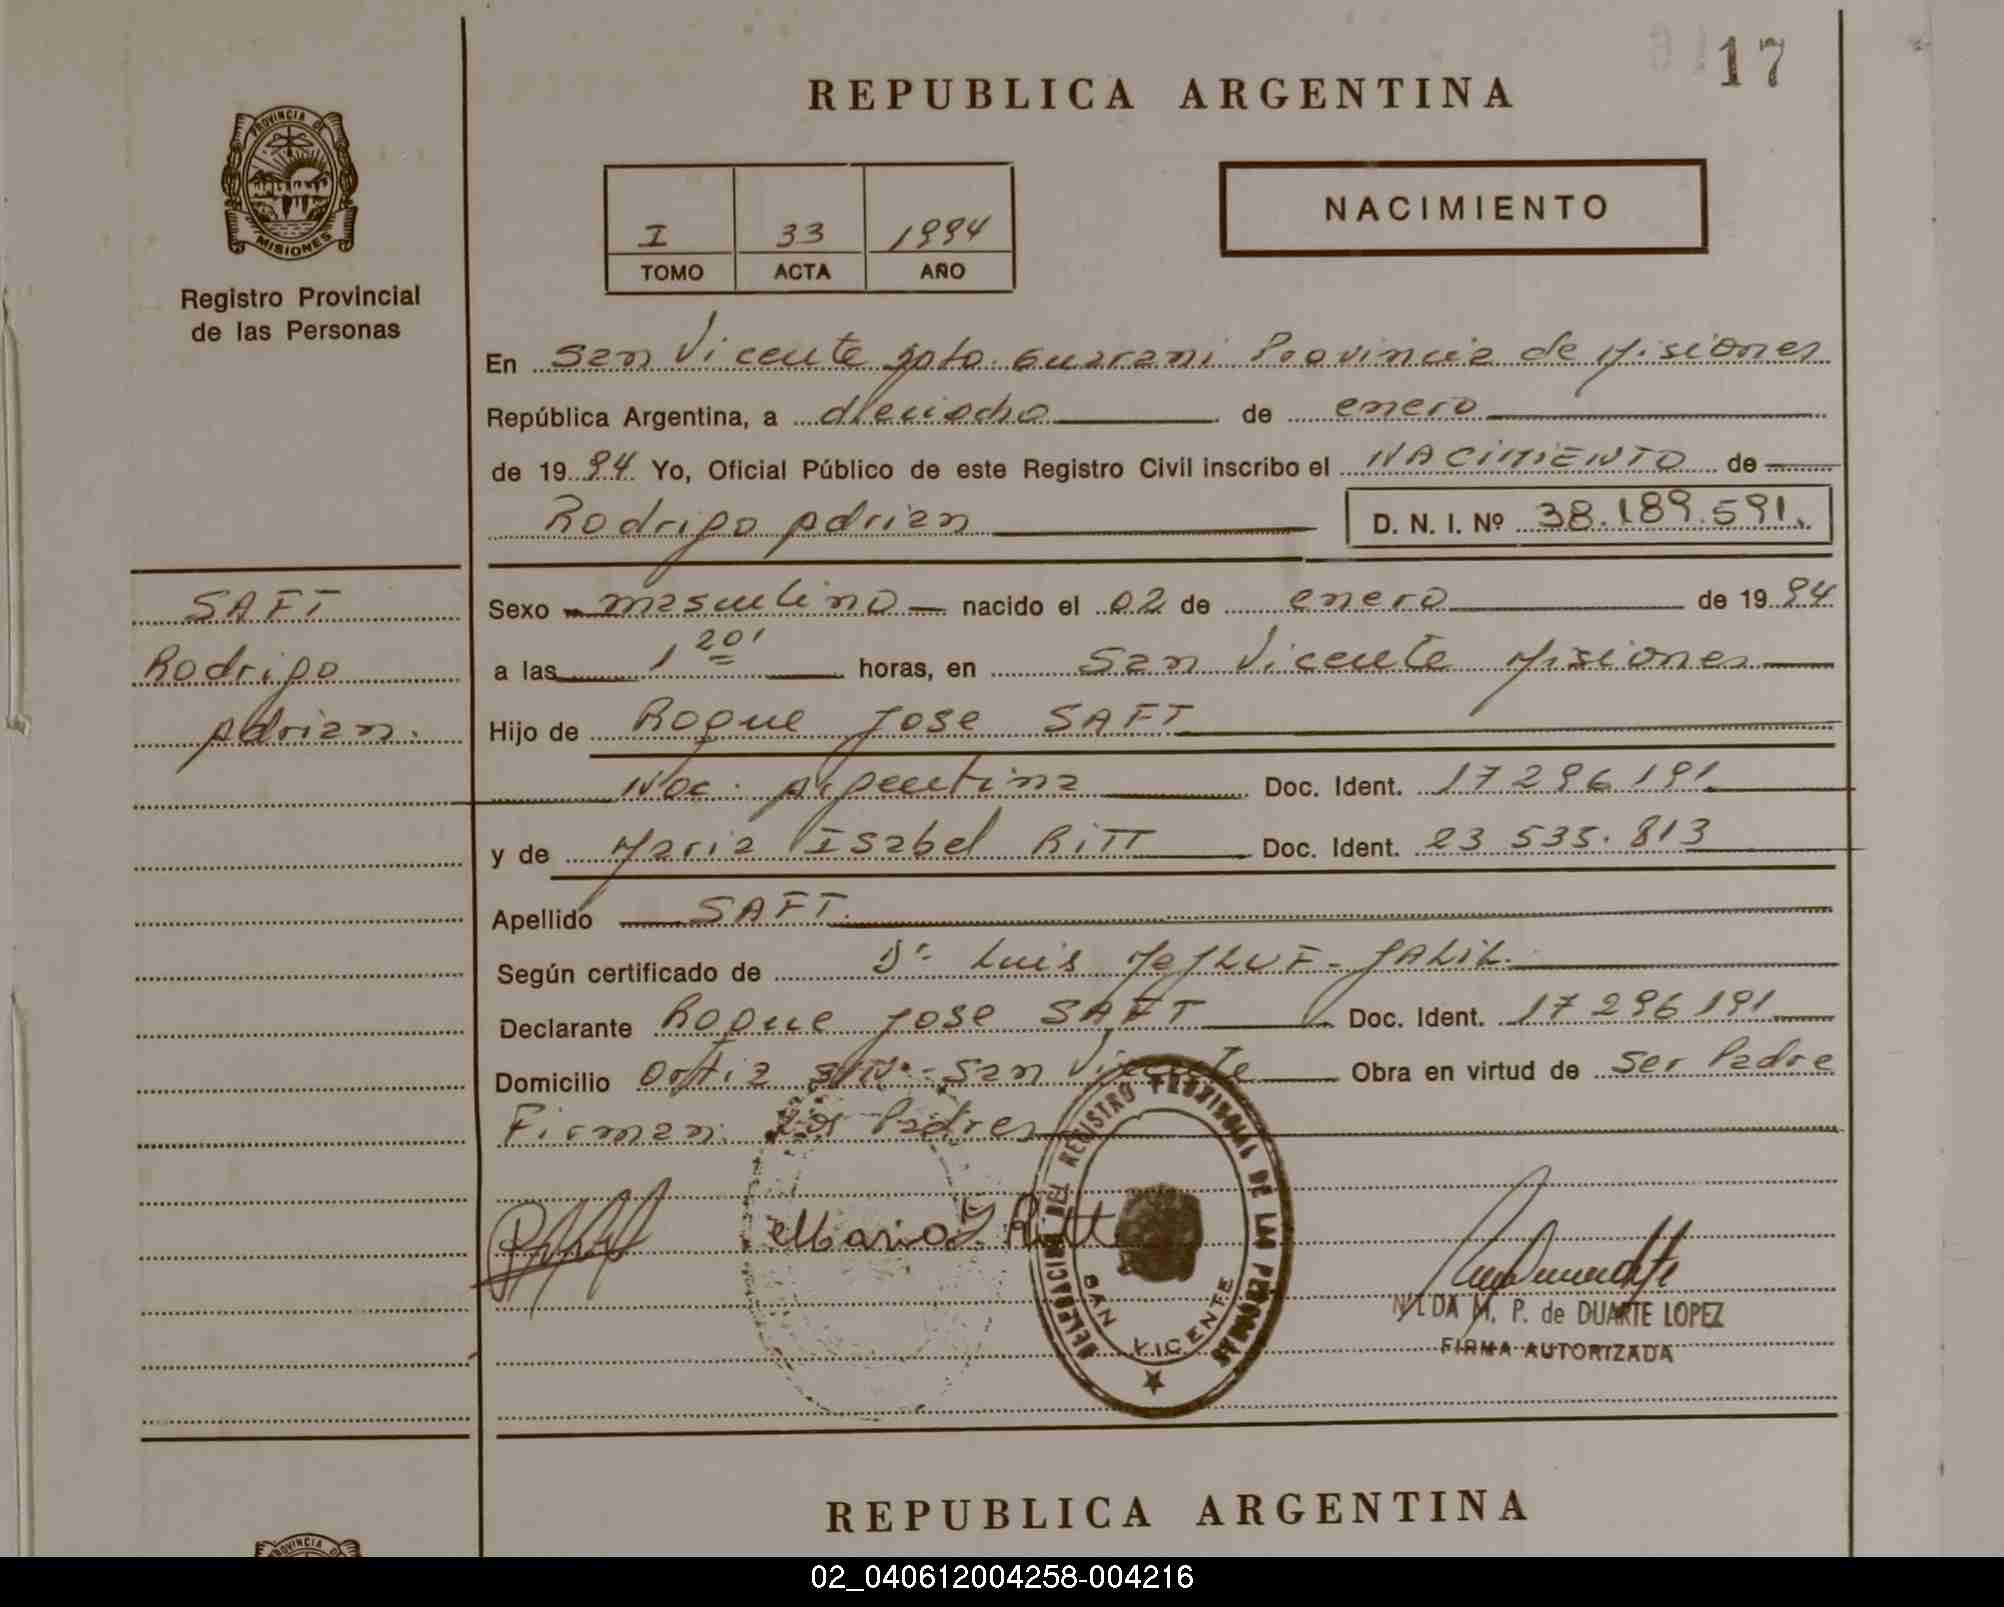 17
REPUBLICA ARGENTINA
PROVINCIA DE
MISIONES
Registro Provincial
de las Personas
I 33 1994
TOMO ACTA AÑO
NACIMIENTO
En San Vicente Dpto. Guarani Provincia de Misiones
República Argentina, a dieciocho de enero
de 1994 Yo, Oficial Público de este Registro Civil inscribo el NACIMIENTO de
Rodrigo Adrian D. N. I. Nº 38.189.591.
SAFT
Rodrigo
Adrian.
Sexo masculino nacido el 02 de enero de 1994
a las 1 20' horas, en San Vicente Misiones
Hijo de Roque Jose SAFT
Nac. Argentina Doc. Ident. 17 296 191
y de Maria Isabel RITT Doc. Ident. 23 535.813
Apellido SAFT.
Según certificado de Dr. Luis JALIL.
Declarante Roque Jose SAFT Doc. Ident. 17 296 191
Domicilio Ortiz S/Nº - San Vicente Obra en virtud de ser Padre
Firman: Los Padres
Maria I. Ritt
DELEGACION DEL REGISTRO PROVINCIAL DE LAS PERSONAS
SAN VICENTE
NILDA M. P. de DUARTE LOPEZ
FIRMA AUTORIZADA
REPUBLICA ARGENTINA
PROVINCIA DE
02_040612004258-004216